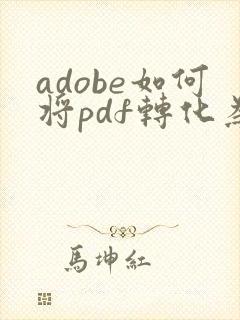 adobe如何
将pdf轉化
馬坤紅